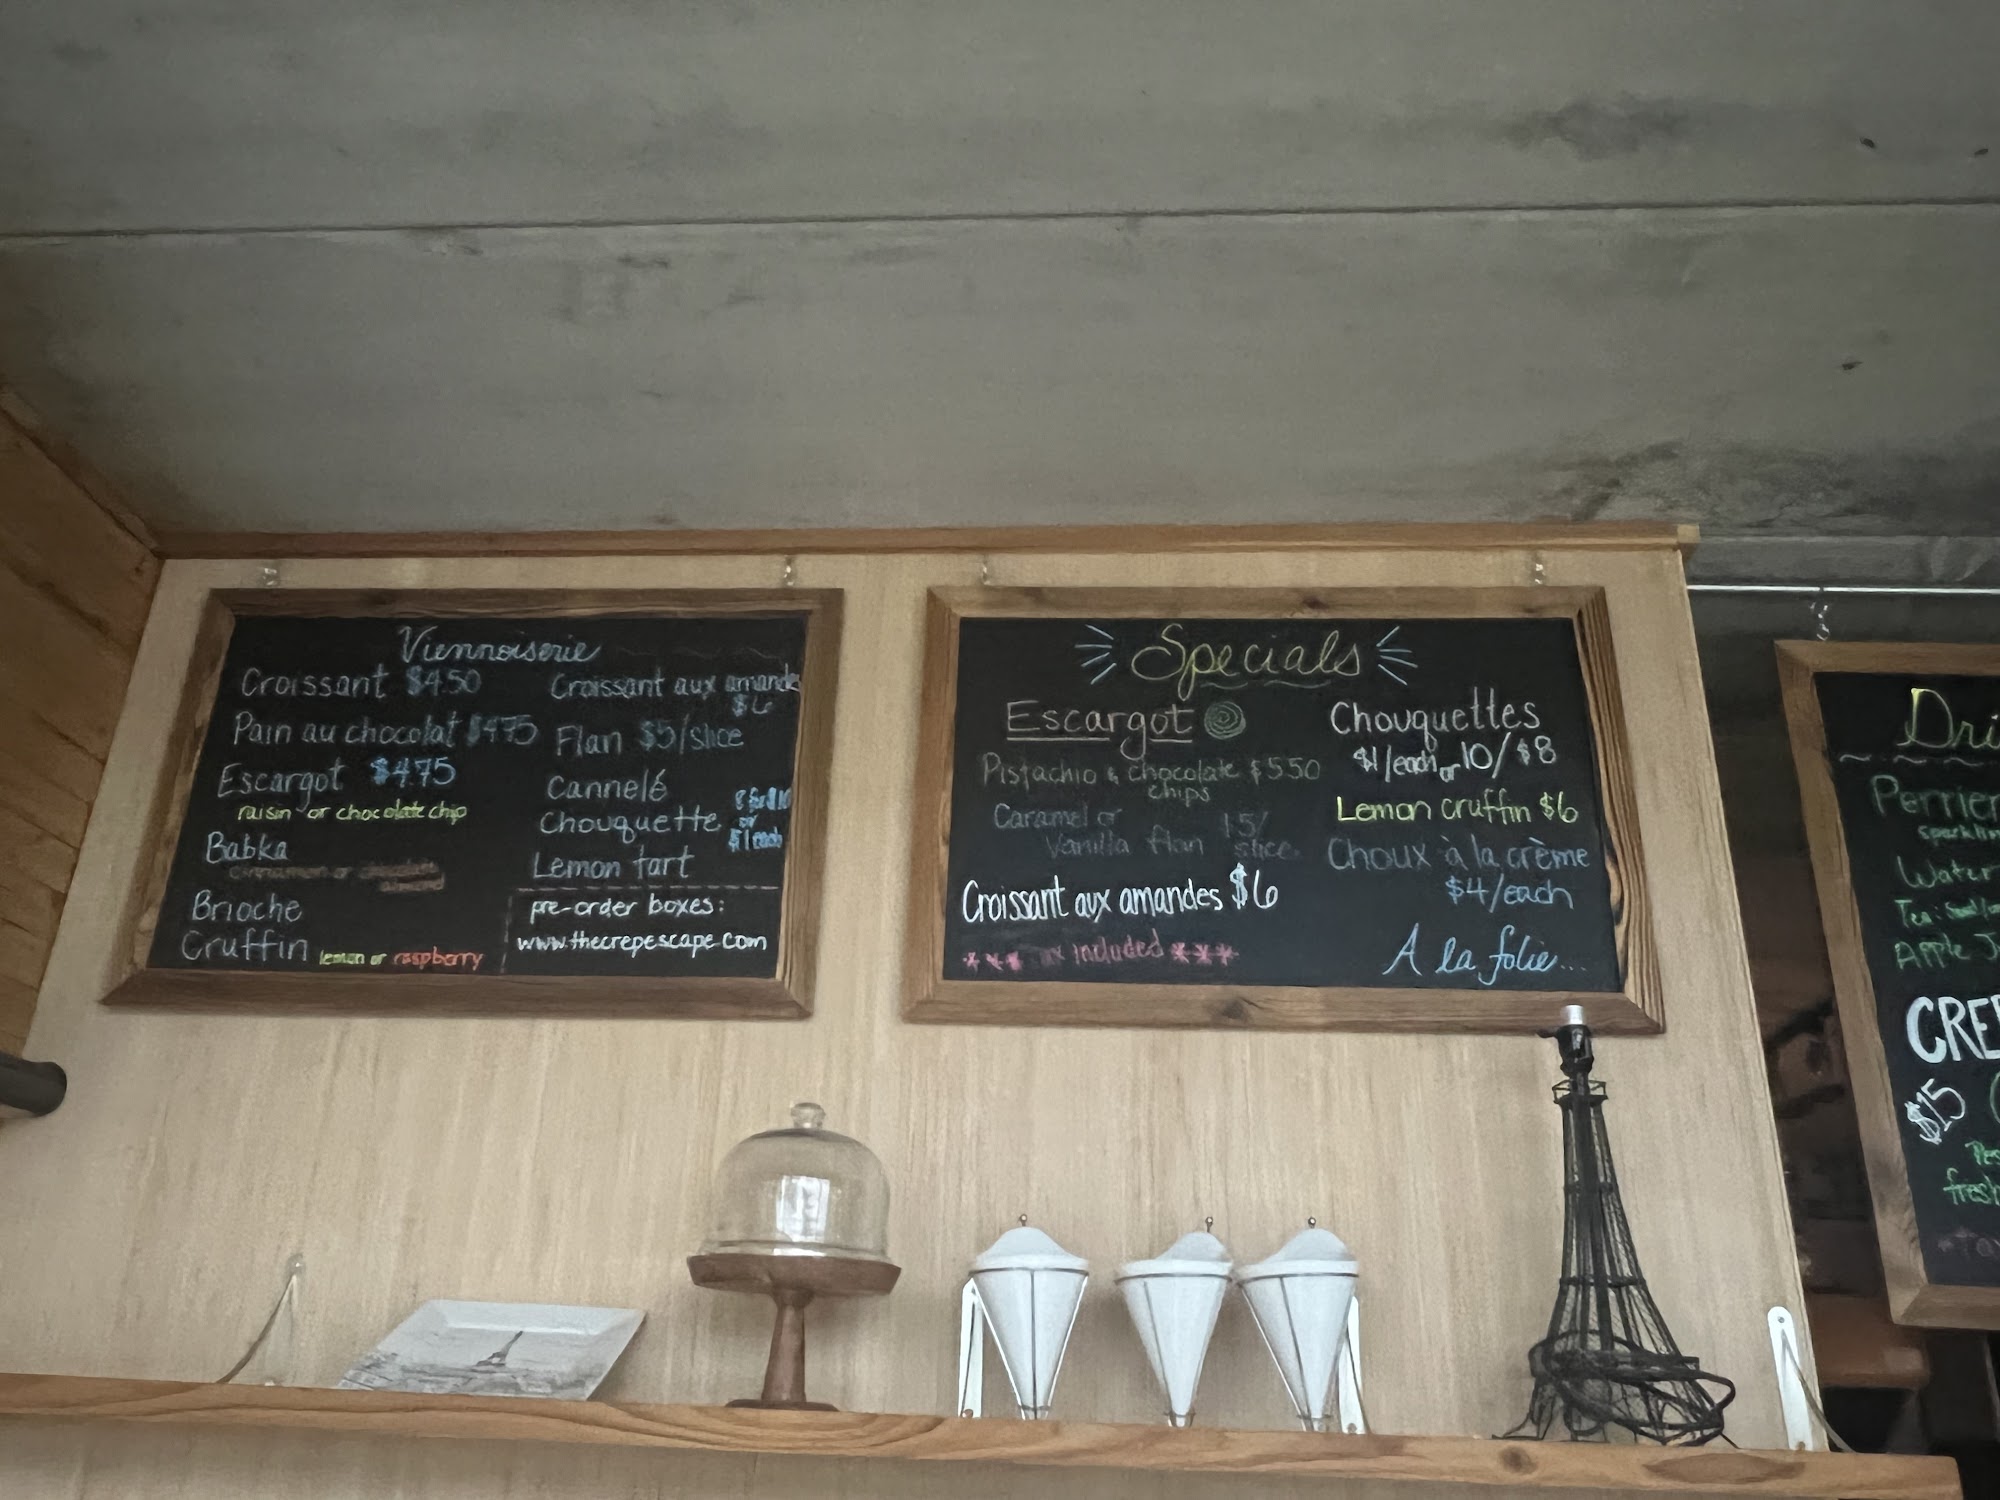 Viennoiserie
Croissant $4.50
Pain au chocolat $4.75
Escargot $4.75
raisin or chocolate chip
Babka
cinnamon or chocolate
almond
Brioche
Cruffin lemon or raspberry
Croissant aux amandes
$6
Flan $5/slice
Cannelé
Chouquette
or
$1/each
Lemon tart
pre-order boxes:
www.thecrepescape.com
Specials
Escargot
Pistachio & chocolate $5.50
chips
Caramel or
Vanilla flan
slice
Croissant aux amandes $6
included
Chouquettes
$1/each or 10/$8
Lemon cruffin $6
Choux à la crème
$4/each
A la folie...
Dri
Perrier
Water
Tea:
Apple J
CREP
$15
fresh